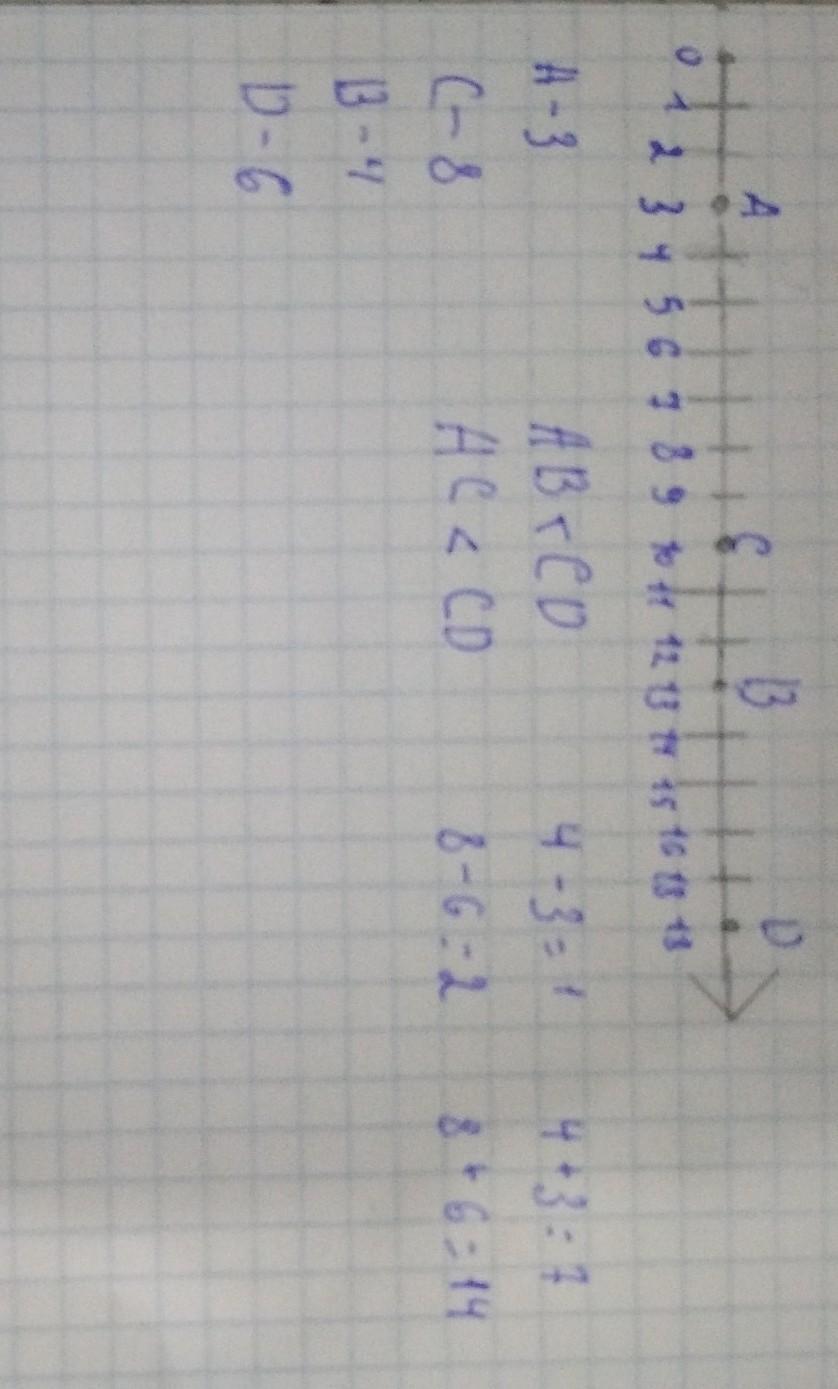 A C B D
0 1 2 3 4 5 6 7 8 9 10 11 12 13 14 15 16 18 18
A - 3 AB < CD 4 - 3 = 1 4 + 3 = 7
C - 8 AC < CD 8 - 6 = 2 8 + 6 = 14
B - 4
D - 6